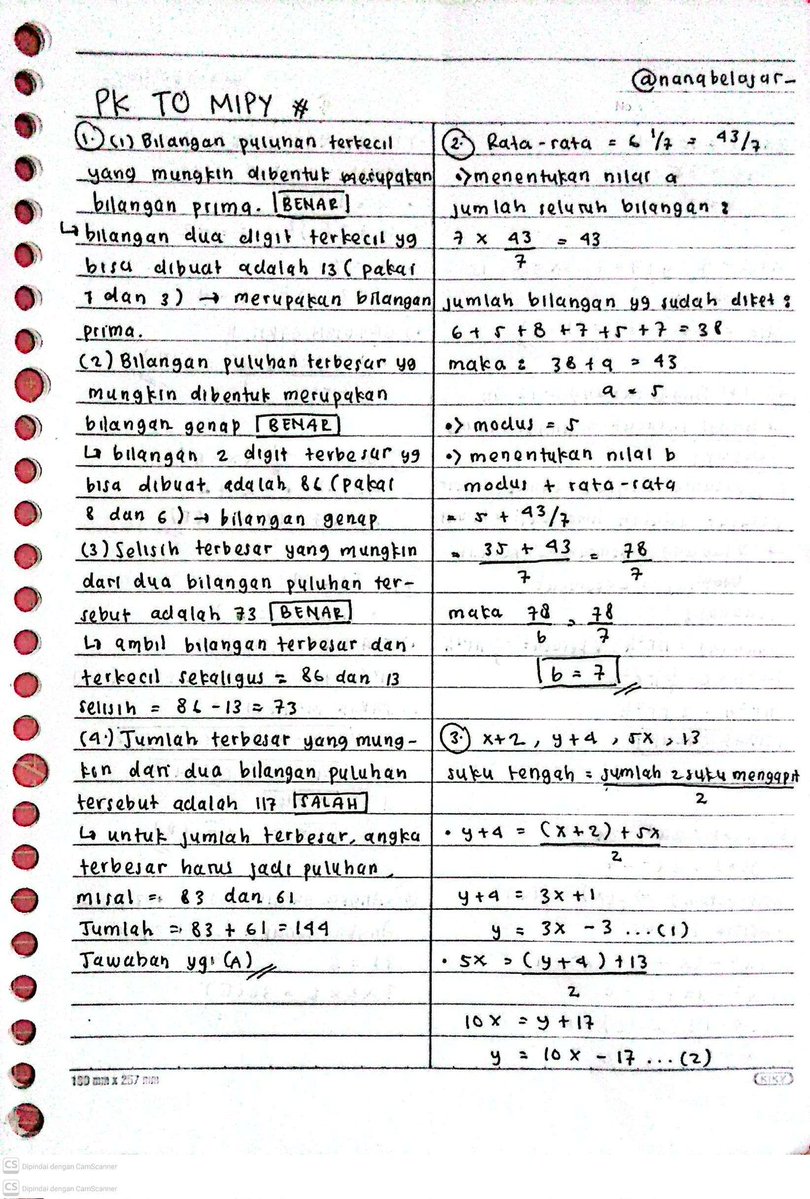 @nanqbelajar_
PK TO MIPY #
1. (1) Bilangan puluhan terkecil
yang mungkin dibentuk merupakan
bilangan prima. BENAR
↳ bilangan dua digit terkecil yg
bisa dibuat adalah 13 ( pakai
1 dan 3 ) → merupakan bilangan
prima.
(2) Bilangan puluhan terbesar yg
mungkin dibentuk merupakan
bilangan genap BENAR
↳ bilangan 2 digit terbesar yg
bisa dibuat adalah 86 ( pakai
8 dan 6 ) → bilangan genap
(3) Selisih terbesar yang mungkin
dari dua bilangan puluhan ter-
sebut adalah 73 BENAR
↳ ambil bilangan terbesar dan
terkecil sekaligus = 86 dan 13
selisih = 86 - 13 = 73
(4.) Jumlah terbesar yang mung-
kin dari dua bilangan puluhan
tersebut adalah 117 SALAH
↳ untuk jumlah terbesar, angka
terbesar harus jadi puluhan,
misal = 83 dan 61
Jumlah = 83 + 61 = 144
Jawaban yg: (A)
2. Rata-rata = 6 1/7 = 43/7
•> menentukan nilai a
jumlah seluruh bilangan :
7 × 43/7 = 43
jumlah bilangan yg sudah diket :
6 + 5 + 8 + 7 + 5 + 7 = 38
maka : 38 + a = 43
a = 5
•> modus = 5
•> menentukan nilai b
modus + rata-rata
= 5 + 43/7
= 35 + 43/7 = 78/7
maka 78/b = 78/7
b = 7
3. x+2, y+4, 5x, 13
suku tengah = jumlah 2 suku mengapit/2
• y+4 = (x+2) + 5x/2
y+4 = 3x+1
y = 3x - 3 ...(1)
• 5x = (y+4) + 13/2
10x = y+17
y = 10x - 17 ...(2)
180 mm x 257 mm
CS Dipindai dengan CamScanner
CS Dipindai dengan CamScanner